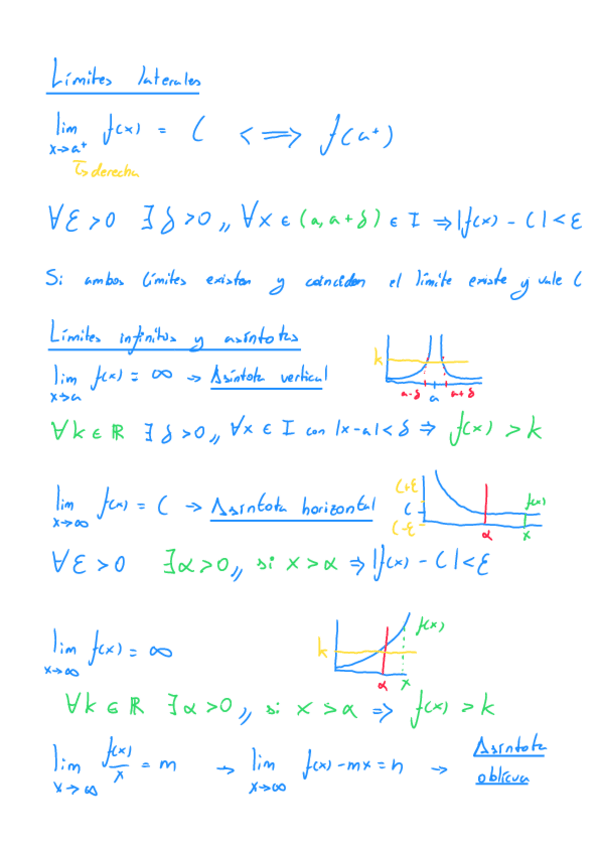 Límites laterales
lim f(x) = l <=> f(a⁺)
x→a⁺
↳ derecha
∀ε>0 ∃δ>0,, ∀x ∈ (a, a+δ) ∈ I ⇒ |f(x) - l| < ε
Si ambos límites existen y coinciden el límite existe y vale l
Límites infinitos y asíntotas
lim f(x) = ∞ → Asíntota vertical
x→a
k
a-δ a a+δ
∀k ∈ ℝ ∃δ>0,, ∀x ∈ I con |x-a| < δ ⇒ f(x) > k
lim f(x) = l → Asíntota horizontal
x→∞
l+ε
l
l-ε
f(x)
α x
∀ε>0 ∃α>0,, si x>α ⇒ |f(x) - l| < ε
lim f(x) = ∞
x→∞
k
f(x)
α x
∀k ∈ ℝ ∃α>0,, si x>α ⇒ f(x) > k
lim f(x)/x = m → lim f(x)-mx = n → Asíntota
x→∞ x→∞ oblicua